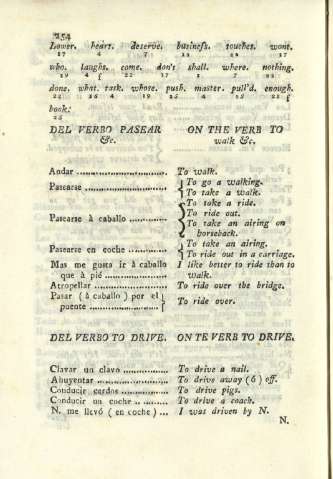 254
Lower. heart. deserve. business. touches. wont.
who. laughs. come. don't shall. where. nothing.
done. what. task. whose. push. master. pull'd. enough.
book.
DEL VERBO PASEAR ON THE VERB TO
&c. walk &c.
Andar ........................... To walk.
Pasearse ........................ { To go a walking.
To take a walk.
Pasearse à caballo .............. { To take a ride.
To ride out.
To take an airing on
horseback.
Pasearse en coche ............... { To take an airing.
To ride out in a carriage.
Mas me gusta ir à caballo I like better to ride than to
que à pié ....................... walk.
Atropellar ...................... To ride over the bridge.
Pasar ( à caballo ) por el } To ride over.
puente ..........................
DEL VERBO TO DRIVE. ON TE VERB TO DRIVE.
Clavar un clavo ............... To drive a nail.
Ahuyentar ..................... To drive away (ó) off.
Conducir cerdos ............... To drive pigs.
Conducir un coche ............. To drive a coach.
N. me llevó ( en coche ) ... I was driven by N.
N.